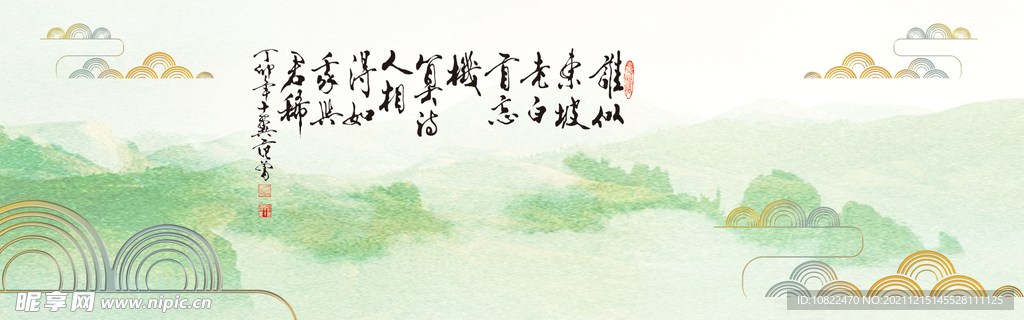 誰似
東坡
老白
首忘
機
算詩
人相
得如
我與
君稀
丁卯年十翼范曾
昵享网 www.nipic.cn
ID:10822470 NO:20211215145528111125